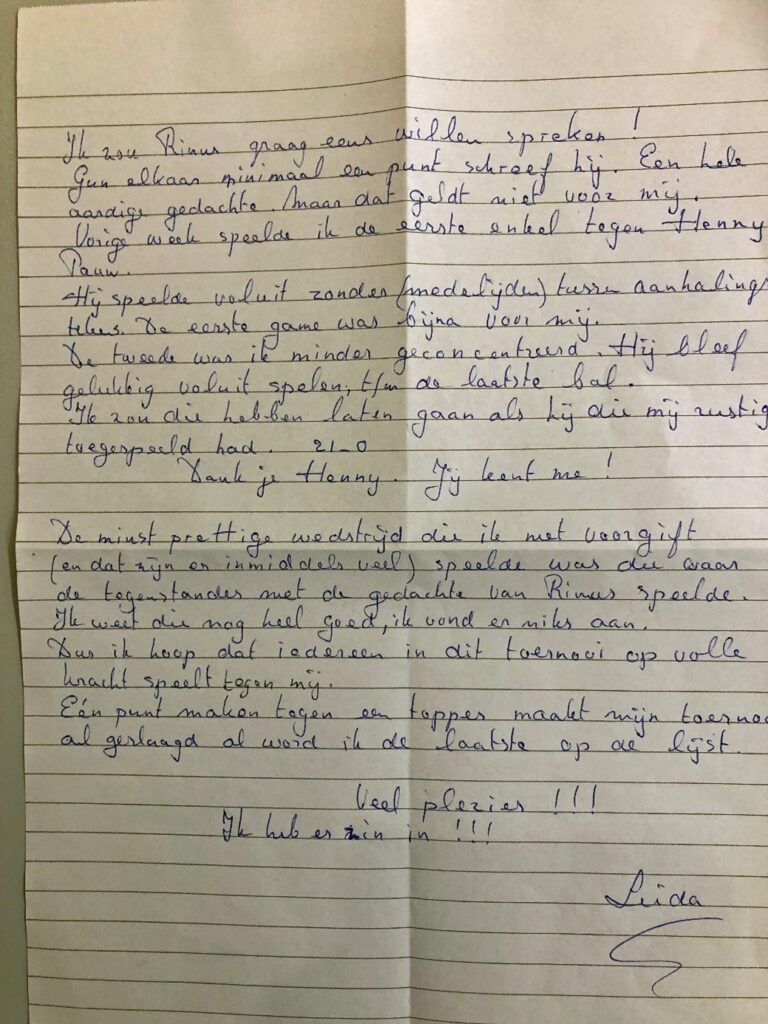 Ik zou Rinus graag eens willen spreken !
Gun elkaar minimaal een punt schreef hij. Een hele
aardige gedachte. Maar dat geldt niet voor mij.
Vorige week speelde ik de eerste enkel tegen Henny
Pauw.
Hij speelde voluit zonder (medelijden) tussen aanhalings
tekens. De eerste game was bijna voor mij.
De tweede was ik minder geconcentreerd. Hij bleef
gelukkig voluit spelen, t/m de laatste bal.
Ik zou die hebben laten gaan als hij die mij rustig
toegespeeld had. 21-0
Dank je Henny. Jij kent me !
De minst prettige wedstrijd die ik met voorgift
(en dat zijn er inmiddels veel) speelde was die waar
de tegenstander met de gedachte van Rinus speelde.
Ik weet die nog heel goed, ik vond er niks aan.
Dus ik hoop dat iedereen in dit toernooi op volle
kracht speelt tegen mij.
Eén punt maken tegen een topper maakt mijn toerno
al geslaagd al word ik de laatste op de lijst.
Veel plezier !!!
Ik heb er zin in !!!
Leida